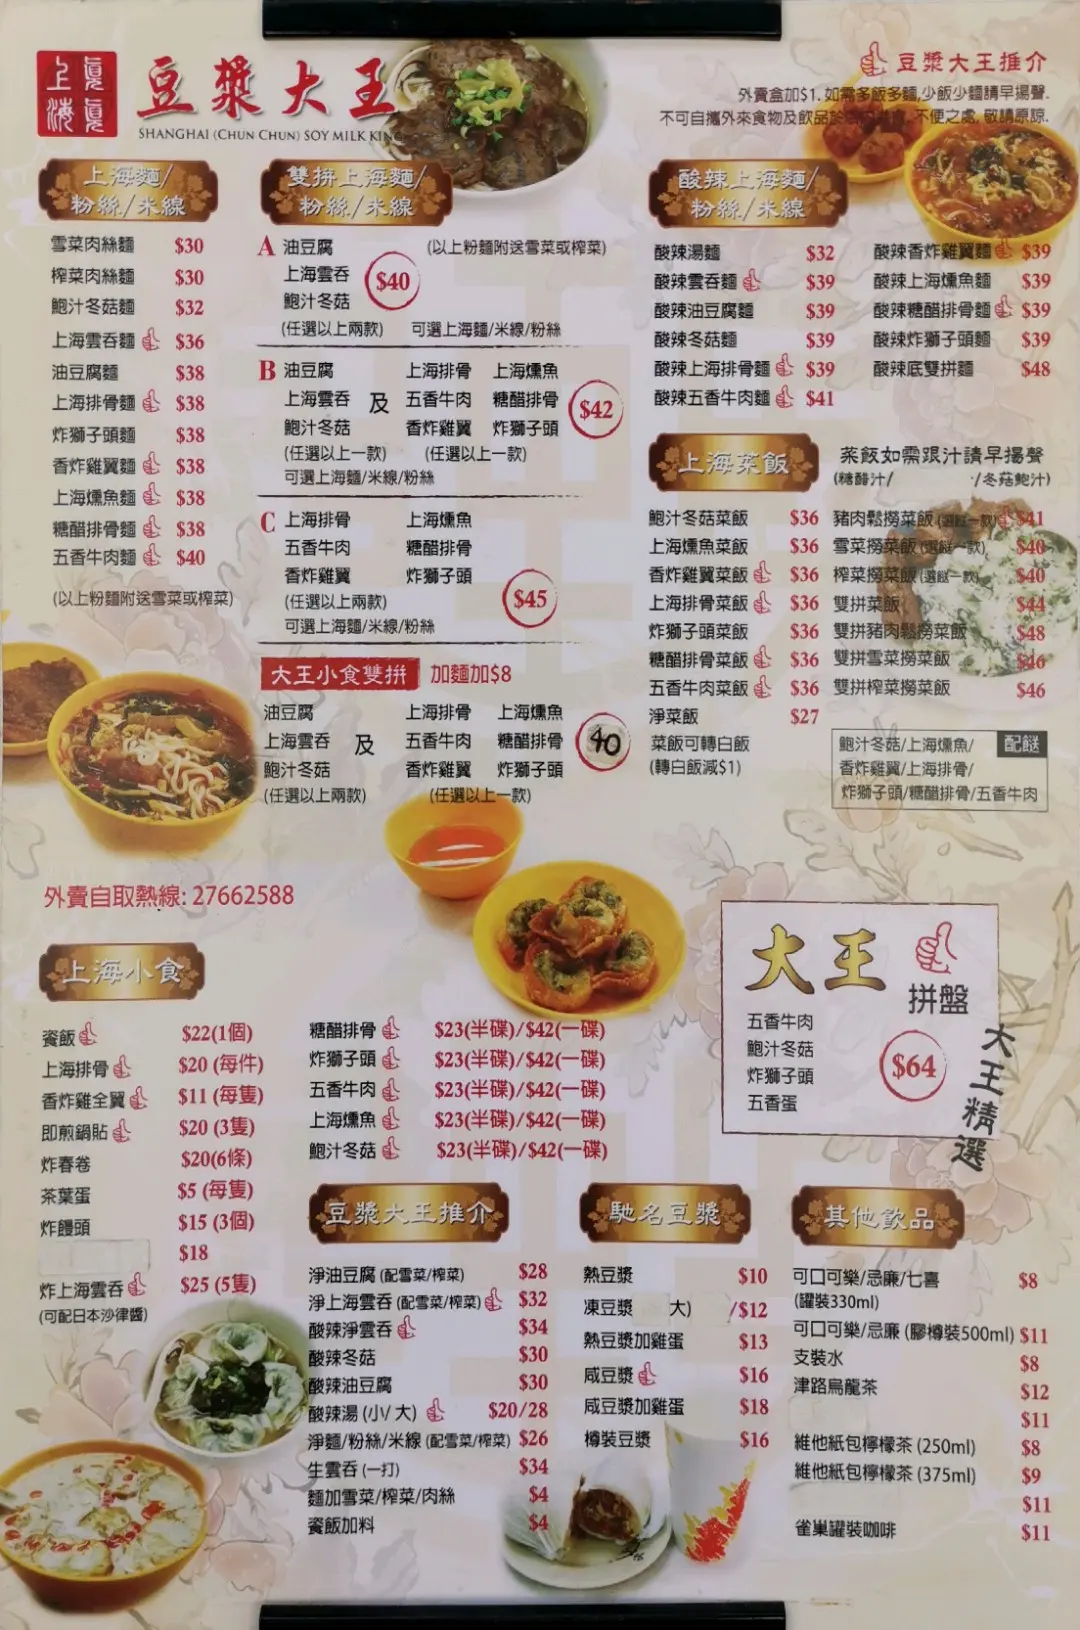 上海眞眞
豆漿大王
SHANGHAI (CHUN CHUN) SOY MILK KING
豆漿大王推介
外賣盒加$1. 如需多飯多麵,少飯少麵請早揚聲.
不可自攜外來食物及飲品於 不便之處, 敬請原諒.
上海麵/
粉絲/米線
雪菜肉絲麵 $30
榨菜肉絲麵 $30
鮑汁冬菇麵 $32
上海雲吞麵 $36
油豆腐麵 $38
上海排骨麵 $38
炸獅子頭麵 $38
香炸雞翼麵 $38
上海燻魚麵 $38
糖醋排骨麵 $38
五香牛肉麵 $40
(以上粉麵附送雪菜或榨菜)
雙拼上海麵/
粉絲/米線
A 油豆腐 (以上粉麵附送雪菜或榨菜)
上海雲吞 $40
鮑汁冬菇
(任選以上兩款) 可選上海麵/米線/粉絲
B 油豆腐 上海排骨 上海燻魚
上海雲吞 及 五香牛肉 糖醋排骨 $42
鮑汁冬菇 香炸雞翼 炸獅子頭
(任選以上一款) (任選以上一款)
可選上海麵/米線/粉絲
C 上海排骨 上海燻魚
五香牛肉 糖醋排骨
香炸雞翼 炸獅子頭
(任選以上兩款) $45
可選上海麵/米線/粉絲
大王小食雙拼 加麵加$8
油豆腐 上海排骨 上海燻魚
上海雲吞 及 五香牛肉 糖醋排骨 40
鮑汁冬菇 香炸雞翼 炸獅子頭
(任選以上兩款) (任選以上一款)
酸辣上海麵/
粉絲/米線
酸辣湯麵 $32
酸辣雲吞麵 $39
酸辣油豆腐麵 $39
酸辣冬菇麵 $39
酸辣上海排骨麵 $39
酸辣五香牛肉麵 $41
酸辣香炸雞翼麵 $39
酸辣上海燻魚麵 $39
酸辣糖醋排骨麵 $39
酸辣炸獅子頭麵 $39
酸辣底雙拼麵 $48
上海菜飯
菜飯如需跟汁請早揚聲
(糖醋汁/ /冬菇鮑汁)
鮑汁冬菇菜飯 $36
上海燻魚菜飯 $36
香炸雞翼菜飯 $36
上海排骨菜飯 $36
炸獅子頭菜飯 $36
糖醋排骨菜飯 $36
五香牛肉菜飯 $36
淨菜飯 $27
菜飯可轉白飯
(轉白飯減$1)
豬肉鬆撈菜飯 (選餸一款) $41
雪菜撈菜飯 (選餸一款) $40
榨菜撈菜飯 (選餸一款) $40
雙拼菜飯 $44
雙拼豬肉鬆撈菜飯 $48
雙拼雪菜撈菜飯 $46
雙拼榨菜撈菜飯 $46
鮑汁冬菇/上海燻魚/ 配餸
香炸雞翼/上海排骨/
炸獅子頭/糖醋排骨/五香牛肉
外賣自取熱線: 27662588
上海小食
粢飯 $22(1個)
上海排骨 $20 (每件)
香炸雞全翼 $11 (每隻)
即煎鍋貼 $20 (3隻)
炸春卷 $20(6條)
茶葉蛋 $5 (每隻)
炸饅頭 $15 (3個)
$18
炸上海雲吞 $25 (5隻)
(可配日本沙律醬)
糖醋排骨 $23(半碟)/$42(一碟)
炸獅子頭 $23(半碟)/$42(一碟)
五香牛肉 $23(半碟)/$42(一碟)
上海燻魚 $23(半碟)/$42(一碟)
鮑汁冬菇 $23(半碟)/$42(一碟)
大王
拼盤
五香牛肉
鮑汁冬菇
炸獅子頭
五香蛋
$64
大王精選
豆漿大王推介
淨油豆腐 (配雪菜/榨菜) $28
淨上海雲吞 (配雪菜/榨菜) $32
酸辣淨雲吞 $34
酸辣冬菇 $30
酸辣油豆腐 $30
酸辣湯 (小/大) $20/28
淨麵/粉絲/米線 (配雪菜/榨菜) $26
生雲吞 (一打) $34
麵加雪菜/榨菜/肉絲 $4
粢飯加料 $4
馳名豆漿
熱豆漿 $10
凍豆漿 大) /$12
熱豆漿加雞蛋 $13
咸豆漿 $16
咸豆漿加雞蛋 $18
樽裝豆漿 $16
其他飲品
可口可樂/忌廉/七喜 $8
(罐裝330ml)
可口可樂/忌廉 (膠樽裝500ml) $11
支裝水 $8
津路烏龍茶 $12
$11
維他紙包檸檬茶 (250ml) $8
維他紙包檸檬茶 (375ml) $9
$11
雀巢罐裝咖啡 $11